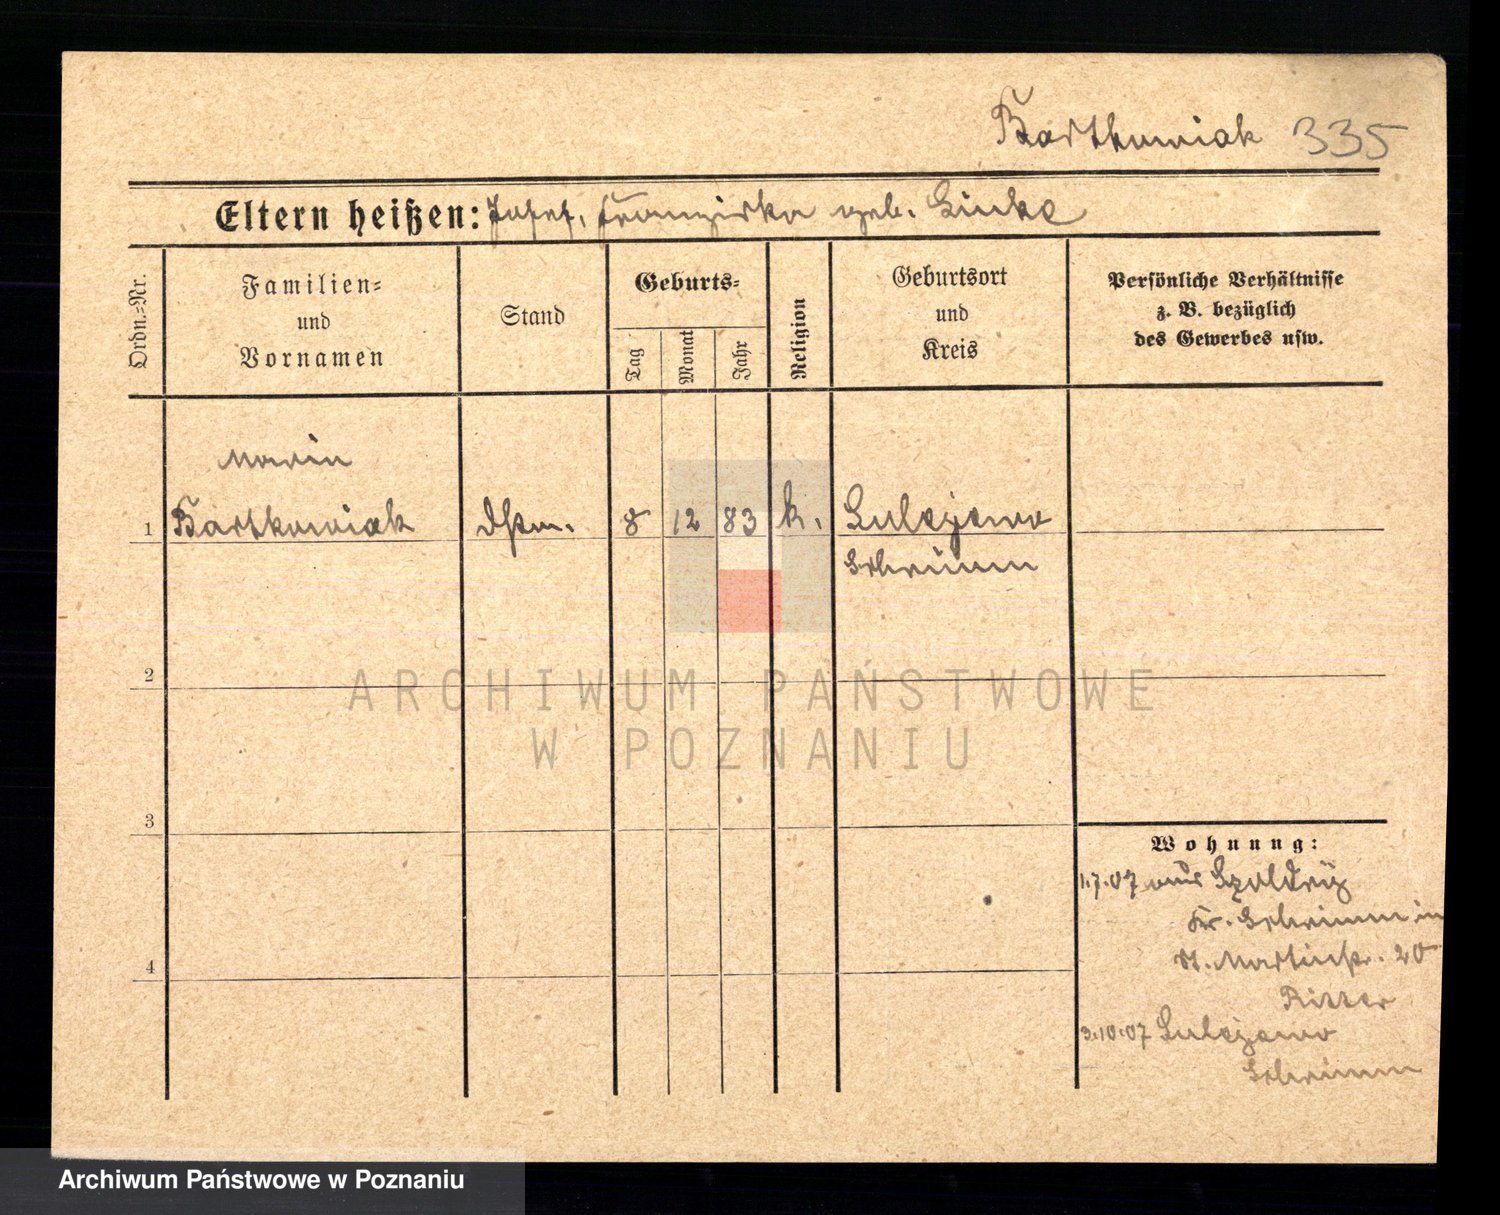 Bartkowiak 335
Eltern heißen: Josef, Franziska geb.
Ordn.-Nr.
Familien-
und
Vornamen
Stand
Geburts-
Tag
Monat
Jahr
Religion
Geburtsort
und
Kreis
Persönliche Verhältnisse
z. B. bezüglich
des Gewerbes usw.
Marie
1 Bartkowiak Dstm. 8 12 83 k. Sulejewo
Schrimm
2
ARCHIWUM PAŃSTWOWE
W POZNANIU
3
Wohnung:
1.7.07 aus Szoldry
Kr. Schrimm in
St. Martinstr. 20
Ritter
3.10.07 Sulejewo
Schrimm
4
Archiwum Państwowe w Poznaniu